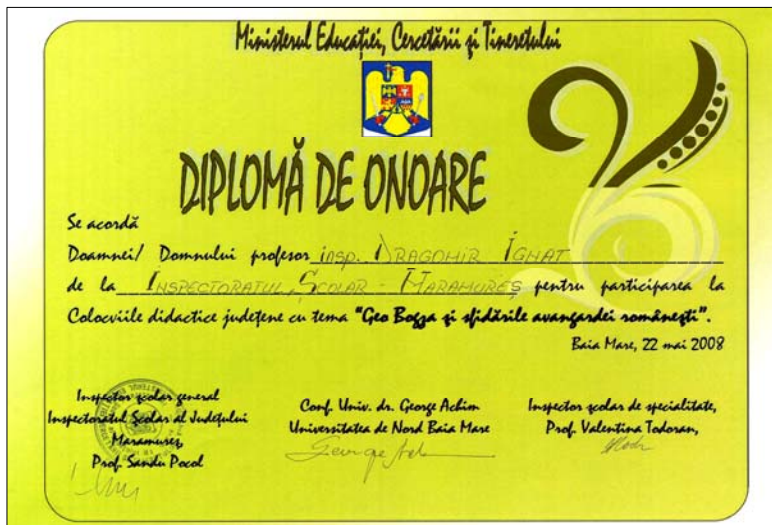 Ministerul Educației, Cercetării și Tineretului
DIPLOMĂ DE ONOARE
Se acordă
Doamnei/ Domnului profesor insp. DRAGOMIR IGNAT
de la INSPECTORATUL ȘCOLAR - MARAMUREȘ pentru participarea la
Colocviile didactice județene cu tema "Geo Bogza și sfidările avangardei românești".
Baia Mare, 22 mai 2008
Inspector școlar general
Inspectoratul Școlar al Județului
Maramureș,
Prof. Sandu Pocol
Conf. Univ. dr. George Achim
Universitatea de Nord Baia Mare
George
Inspector școlar de specialitate,
Prof. Valentina Todoran,